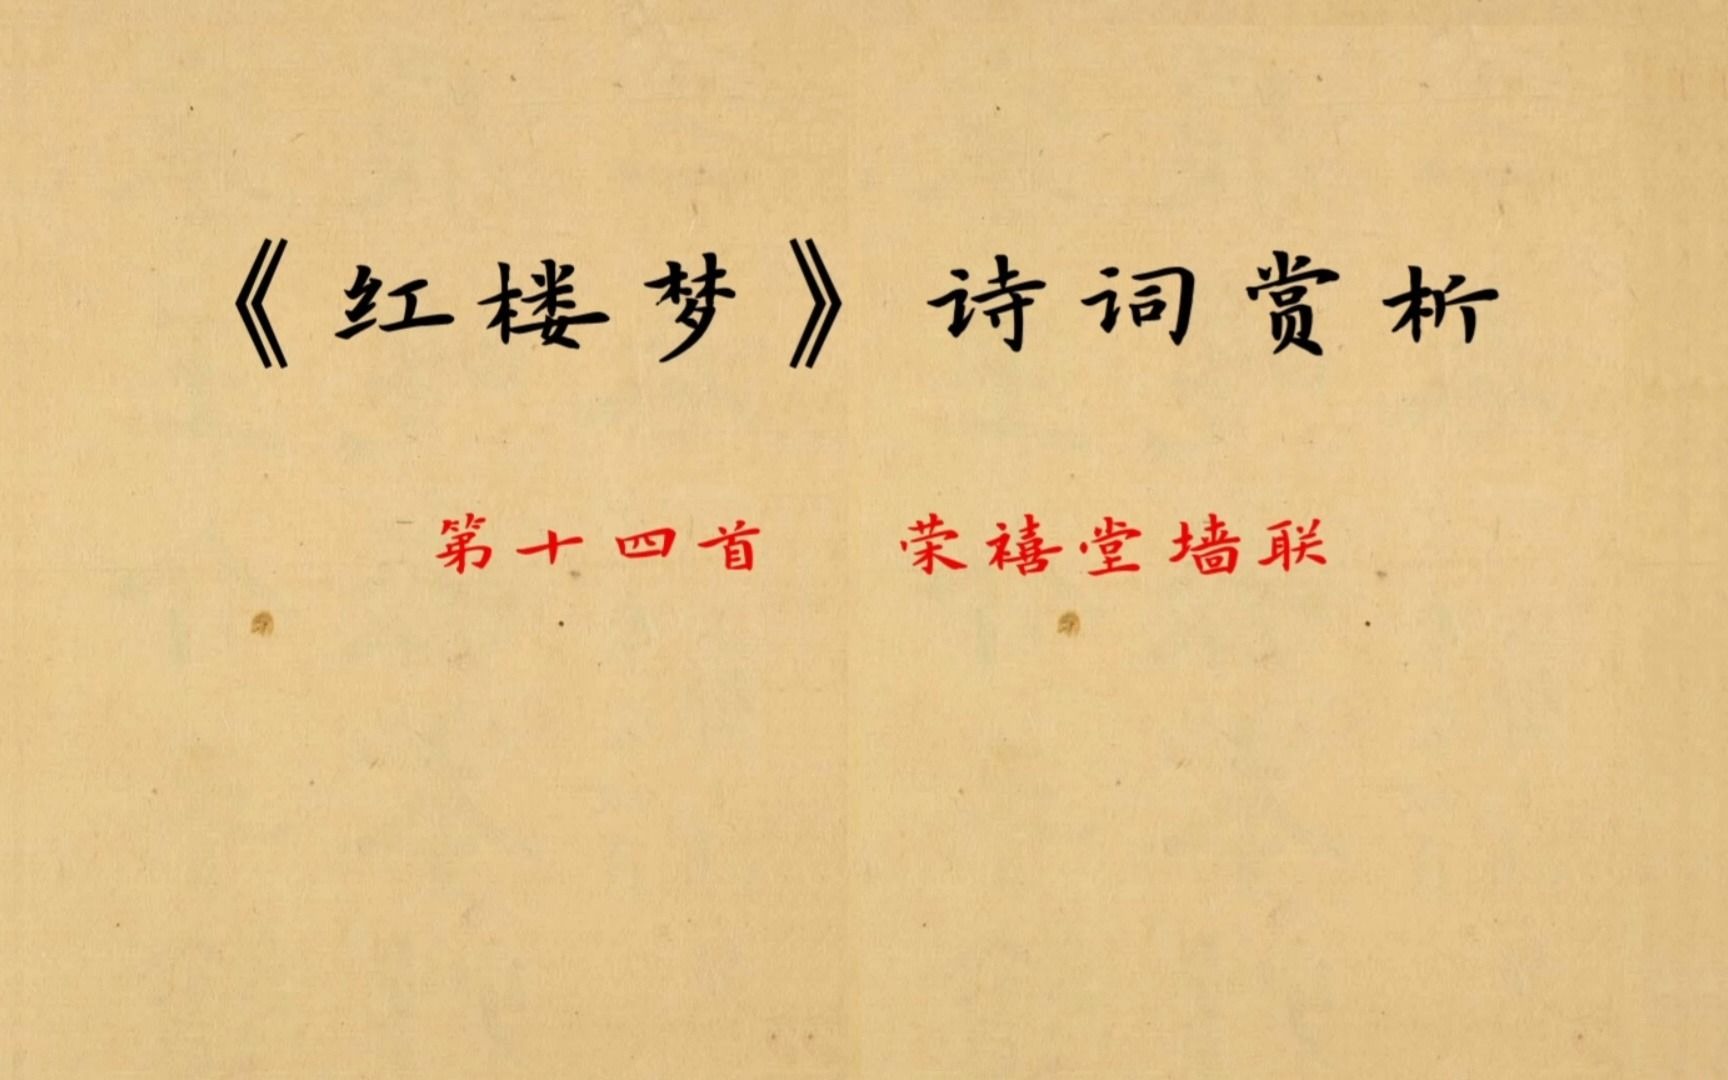 《红楼梦》诗词赏析
第十四首 荣禧堂墙联